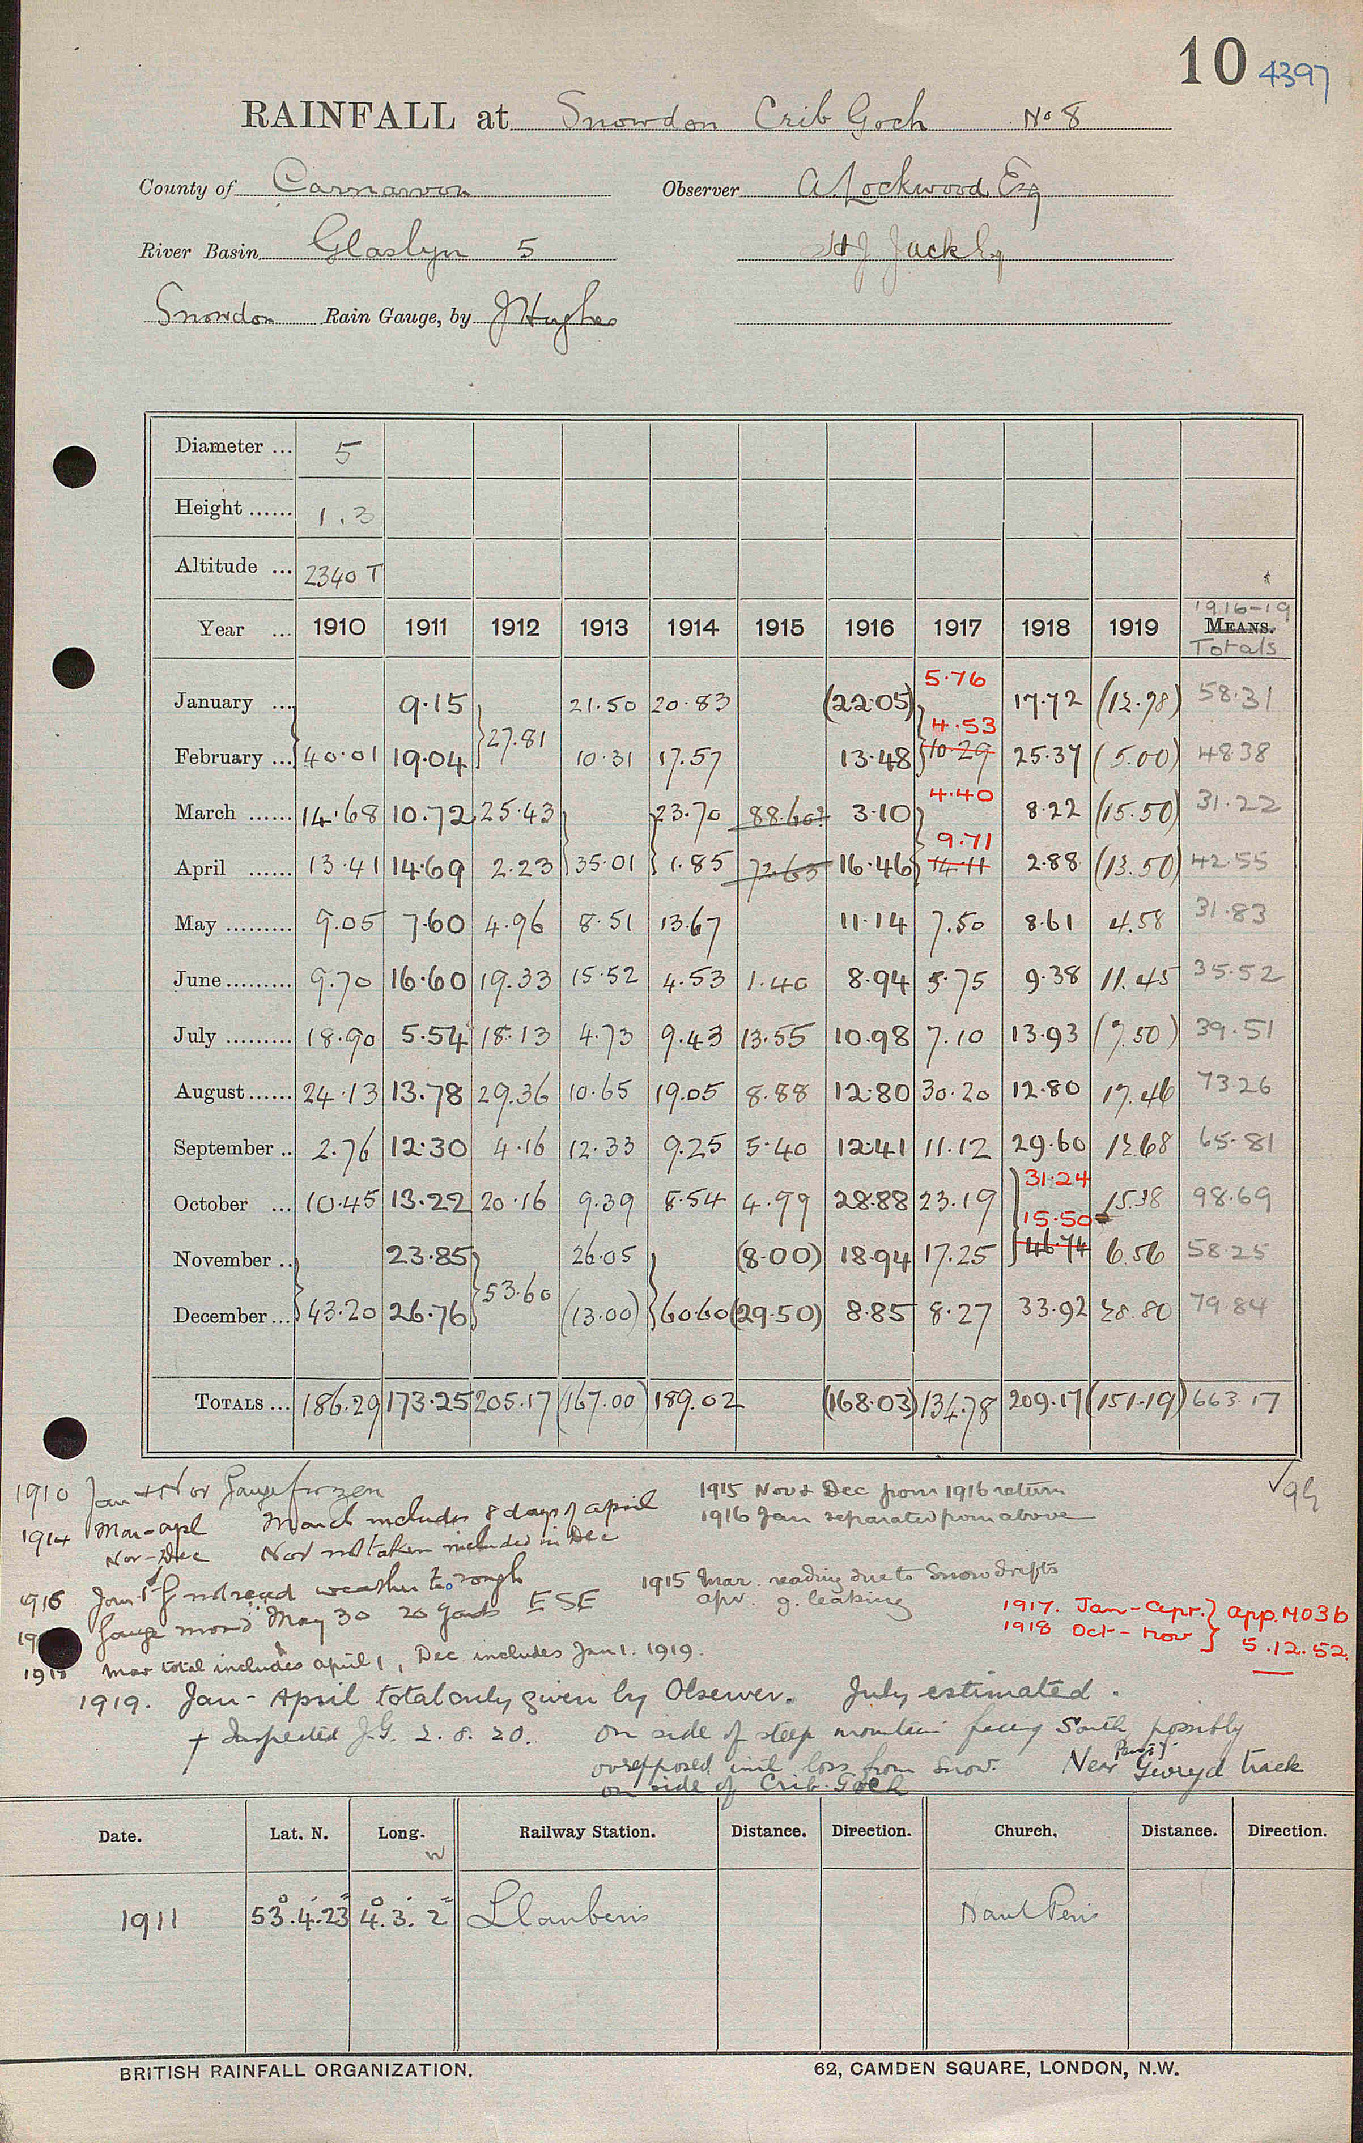 10 4397
RAINFALL at Snowdon Crib Goch No 8
County of Carnarvon Observer A Lockwood Esq
River Basin Glaslyn 5 H J Jack Esq
Snowdon Rain Gauge, by J Hughes
Diameter ... 5
Height ...... 1.3
Altitude ... 2340 T
1916-19
Year ... 1910 1911 1912 1913 1914 1915 1916 1917 1918 1919 MEANS.
Totals
5.76
January ... 9.15 21.50 20.83 (22.05) 17.72 (12.78) 58.31
27.81 4.53
February ... 40.01 19.04 10.31 17.57 13.48 10.29 25.37 (5.00) 48.38
4.40
March ...... 14.68 10.72 25.43 23.70 88.60? 3.10 8.22 (15.50) 31.22
9.71
April ...... 13.41 14.69 2.23 35.01 1.85 72.63 16.46 14.11 2.88 (13.50) 42.55
May ......... 9.05 7.60 4.96 8.51 13.67 11.14 7.50 8.61 4.58 31.83
June ......... 9.70 16.60 19.33 15.52 4.53 1.40 8.94 5.75 9.38 11.45 35.52
July ......... 18.90 5.54 18.13 4.73 9.43 13.55 10.98 7.10 13.93 (7.50) 39.51
August ...... 24.13 13.78 29.36 10.65 19.05 8.88 12.80 30.20 12.80 17.46 73.26
September .. 2.76 12.30 4.16 12.33 9.25 5.40 12.41 11.12 29.60 12.68 65.81
31.24
October ... 10.45 13.22 20.16 9.39 8.54 4.99 28.88 23.19 15.38 98.69
15.50
November .. 23.85 26.05 (8.00) 18.94 17.25 46.74 6.56 58.25
53.60
December ... 43.20 26.76 (13.00) 60.60 (29.50) 8.85 8.27 33.92 28.80 79.84
TOTALS ... 186.29 173.25 205.17 (167.00) 189.02 (168.03) 134.78 209.17 (151.19) 663.17
1910 Jan + Nov Gauge frozen 1915 Nov & Dec from 1916 return
1914 Mar-Apl March includes 8 days of April 1916 Jan separated from above
Nov-Dec Nov not taken included in Dec
1916 Jan 1st G not read weather too rough 1915 Mar. reading due to Snowdrifts
Apr. g. leaking
Gauge moved May 30 20 yards ESE
1917. Jan-Apr. } App. MO3b
1918 Oct-Nov } 5.12.52.
1918 Mar total includes April 1, Dec includes Jan 1. 1919.
1919. Jan-April total only given by Observer. July estimated.
+ Inspected J.G. 2.8.20. On side of steep mountain facing South possibly
overexposed until loss from Snow. Near Penyg Gwryd track
on side of Crib Goch
Date. Lat. N. Long. W Railway Station. Distance. Direction. Church. Distance. Direction.
1911 53° 4' 23" 4° 3' 2" Llanberis Nant Peris
BRITISH RAINFALL ORGANIZATION. 62, CAMDEN SQUARE, LONDON, N.W.